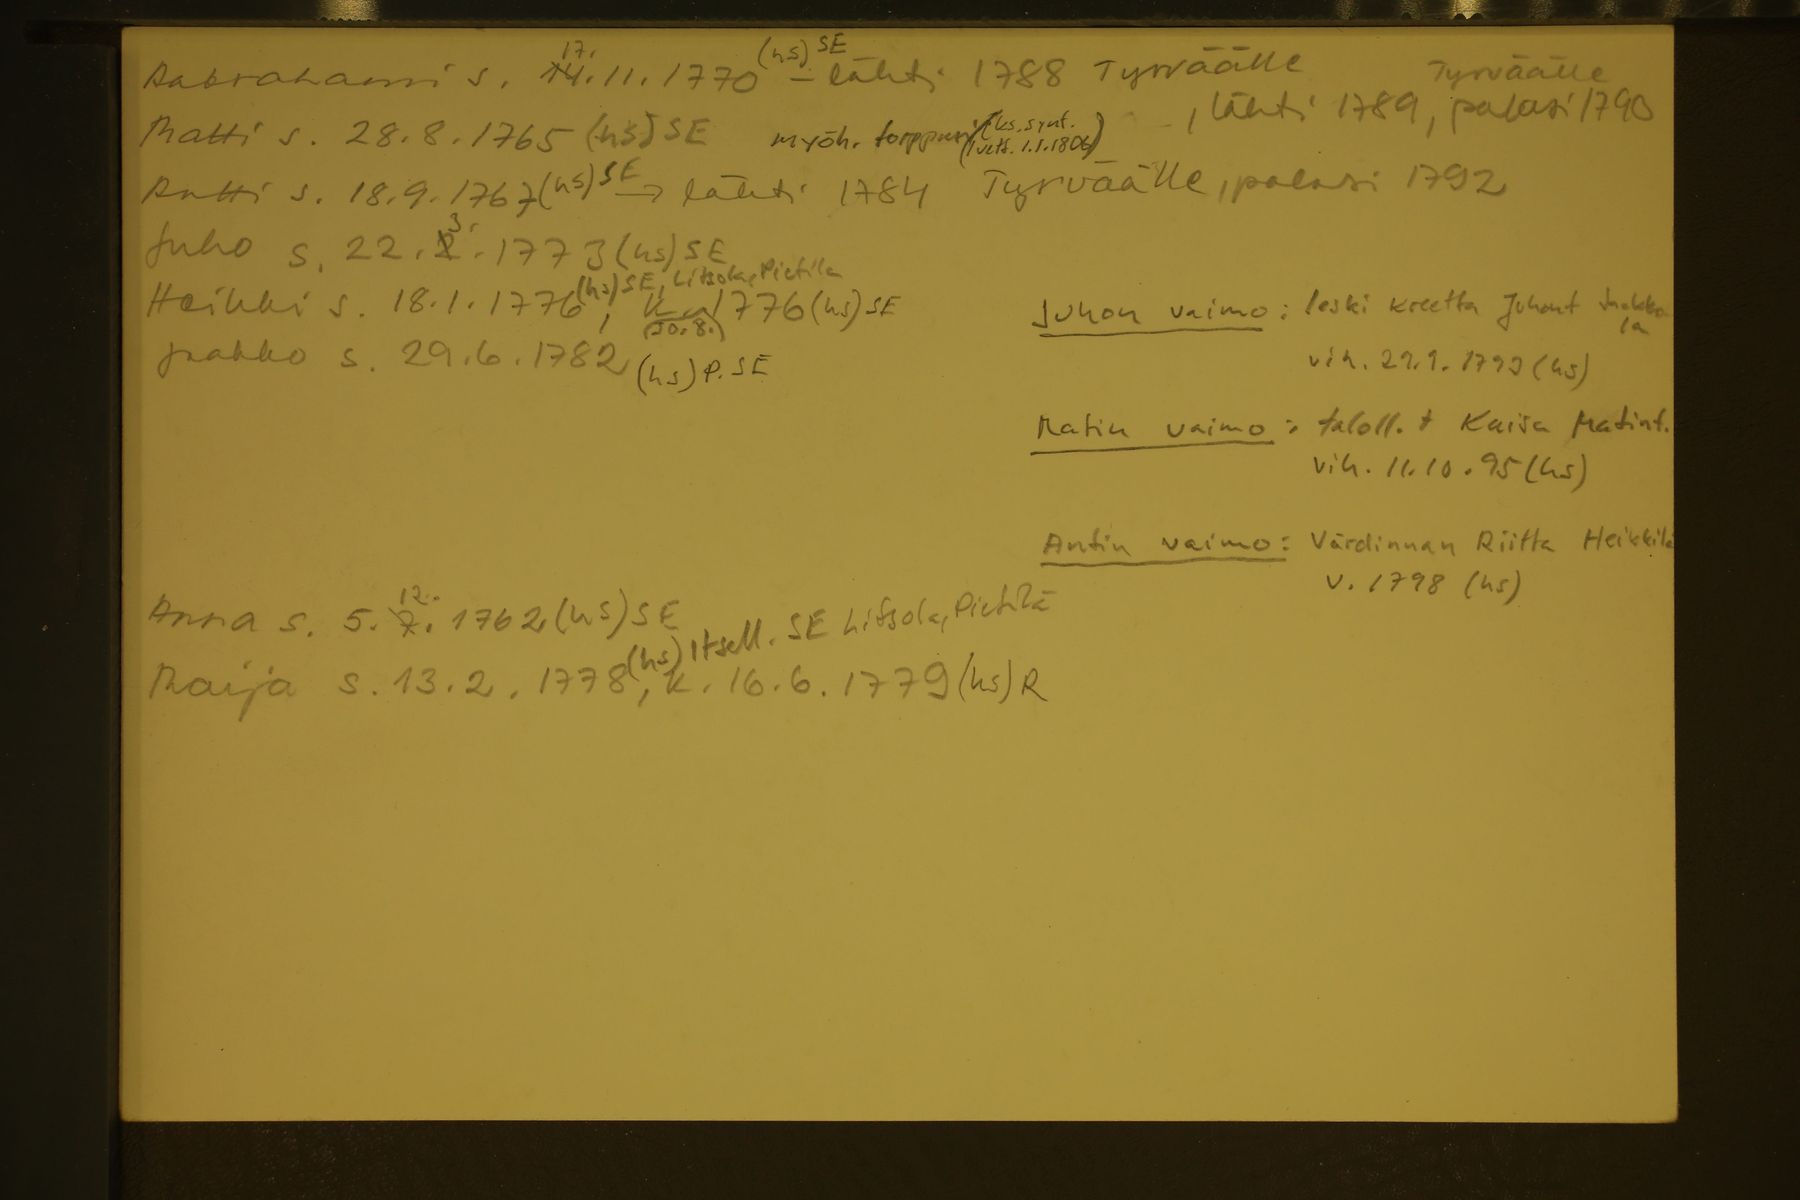 Aabrahami s. 14. 17. 11. 1770 (hs) SE – lähti 1788 Tyrväälle
Tyrväälle
Matti s. 28.8.1765 (hs) SE myöh. torppari (ks. synt. 1.1.1806) , lähti 1789, palasi 1790
Antti s. 18.9.1767 (hs) SE → lähti 1784 Tyrväälle, palasi 1792
Juho s. 22. 2. 3. 1773 (hs) SE
Heikki s. 18.1.1776 (hs) SE, Litsola, Pietilä, k. 1776 (hs) SE
(30.8.)
Jaakko s. 29.6.1782 (hs) P. SE
Juhon vaimo: leski Kreetta Juhont Jaakkola
vih. 29.9.1793 (hs)
Matin vaimo: taloll. t Kaisa Matint.
vih. 11.10.95 (hs)
Antin vaimo: Värdinnan Riitta Heikkilä
v. 1798 (hs)
Anna s. 5. 7. 12. 1762 (hs) SE
Maija s. 13.2.1778 (hs) Itsell. SE Litsola, Pietilä, k. 16.6.1779 (hs) R